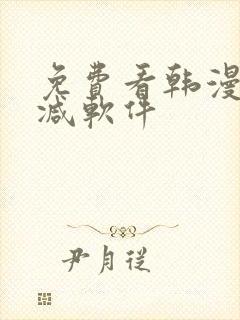 免費看韩漫
减軟件
尹月從